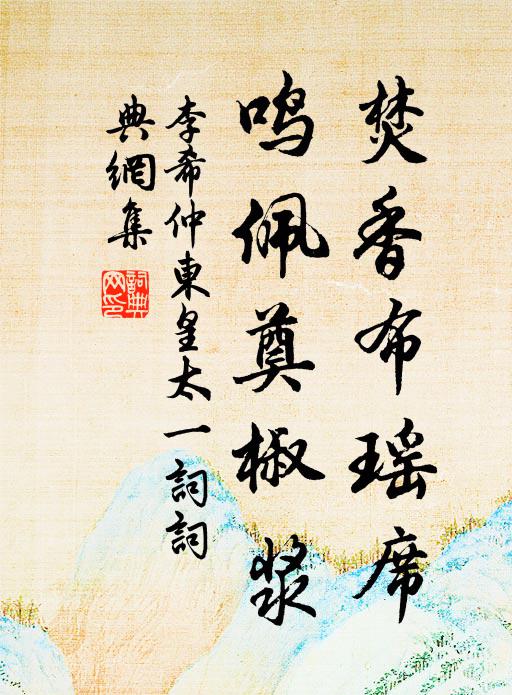 焚香布瑶席
鸣佩奠椒浆
李希仲東皇太一詞詞
典網集
詞典网印